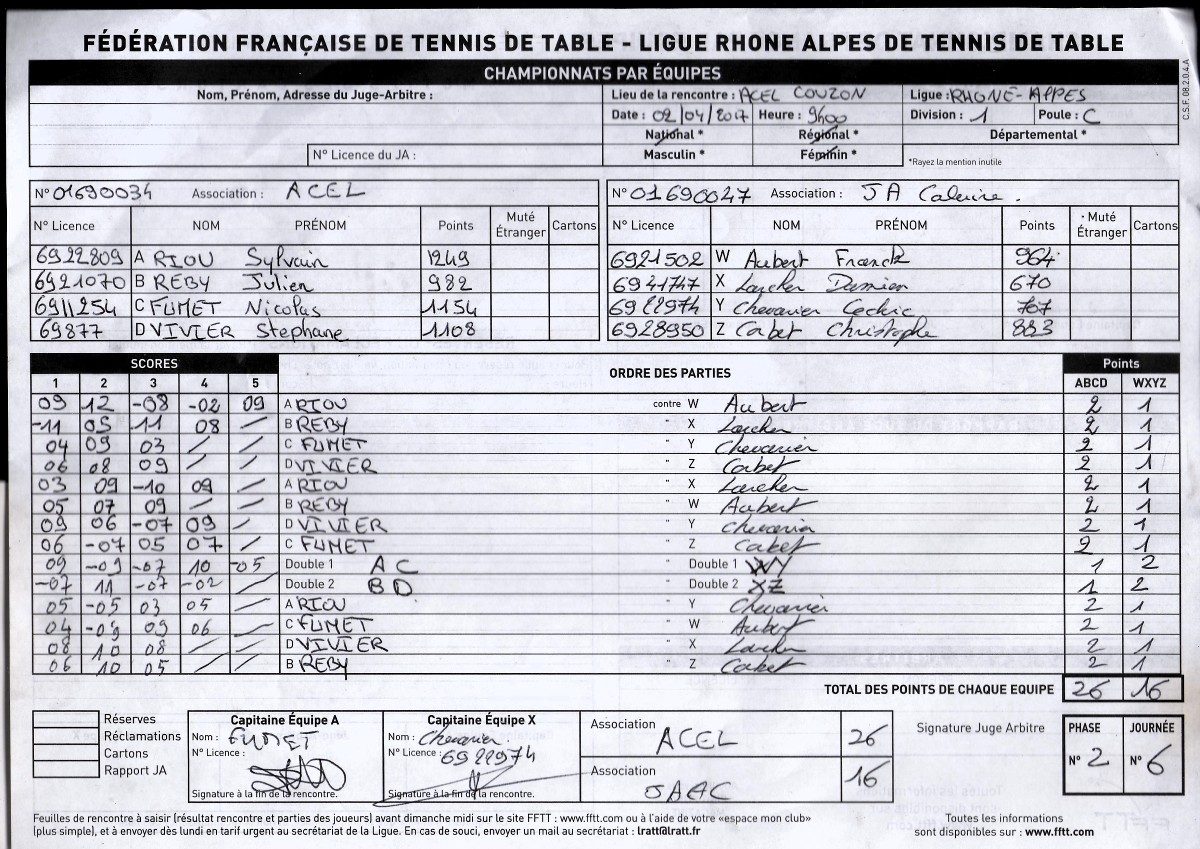 FÉDÉRATION FRANÇAISE DE TENNIS DE TABLE - LIGUE RHONE ALPES DE TENNIS DE TABLE
CHAMPIONNATS PAR ÉQUIPES
C.S.F. 08.2.0.4.A
Nom, Prénom, Adresse du Juge-Arbitre : Lieu de la rencontre : ACEL COUZON Ligue : RHONE-ALPES
Date : 02/04/2017 Heure : 9h00 Division : 1 Poule : C
National * Régional * Départemental *
N° Licence du JA : Masculin * Féminin * *Rayez la mention inutile
N° 01690034 Association : ACEL N° 01690047 Association : JA Caluire.
N° Licence NOM PRÉNOM Points Muté Étranger Cartons N° Licence NOM PRÉNOM Points Muté Étranger Cartons
6922809 A RIOU Sylvain 1249 6921502 W Aubert Franck 964
6921070 B REBY Julien 982 6941747 X Larcher Damien 670
6911254 C FUMET Nicolas 1154 6922974 Y Chevarier Cedric 767
69877 D VIVIER Stephane 1108 6928950 Z Corbet Christophe 883
SCORES ORDRE DES PARTIES Points
1 2 3 4 5 ABCD WXYZ
09 12 -08 -02 09 A RIOU contre W Aubert 2 1
-11 05 -11 08 / B REBY " X Larcher 2 1
04 09 03 / / C FUMET " Y Chevarier 2 1
06 08 09 / / D VIVIER " Z Corbet 2 1
03 09 -10 09 / A RIOU " X Larcher 2 1
05 07 09 / / B REBY " W Aubert 2 1
09 06 -07 09 / D VIVIER " Y Chevarier 2 1
06 -07 05 07 / C FUMET " Z Corbet 2 1
09 -09 -07 10 -05 Double 1 AC " Double 1 WY 1 2
-07 11 -07 -02 / Double 2 BD " Double 2 XZ 1 2
05 -05 03 05 / A RIOU " Y Chevarier 2 1
04 -09 09 06 / C FUMET " W Aubert 2 1
08 10 08 / / D VIVIER " X Larcher 2 1
06 10 05 / / B REBY " Z Corbet 2 1
TOTAL DES POINTS DE CHAQUE EQUIPE 26 16
Réserves
Réclamations
Cartons
Rapport JA
Capitaine Équipe A
Nom : FUMET
N° Licence :
Signature à la fin de la rencontre.
Capitaine Équipe X
Nom : Chevarier.
N° Licence : 6922974
Signature à la fin de la rencontre.
Association ACEL 26
Association JAAC 16
Signature Juge Arbitre
PHASE N° 2
JOURNÉE N° 6
Feuilles de rencontre à saisir (résultat rencontre et parties des joueurs) avant dimanche midi sur le site FFTT : www.fftt.com ou à l'aide de votre «espace mon club»
(plus simple), et à envoyer dès lundi en tarif urgent au secrétariat de la Ligue. En cas de souci, envoyer un mail au secrétariat : lratt@lratt.fr
Toutes les informations
sont disponibles sur : www.fftt.com